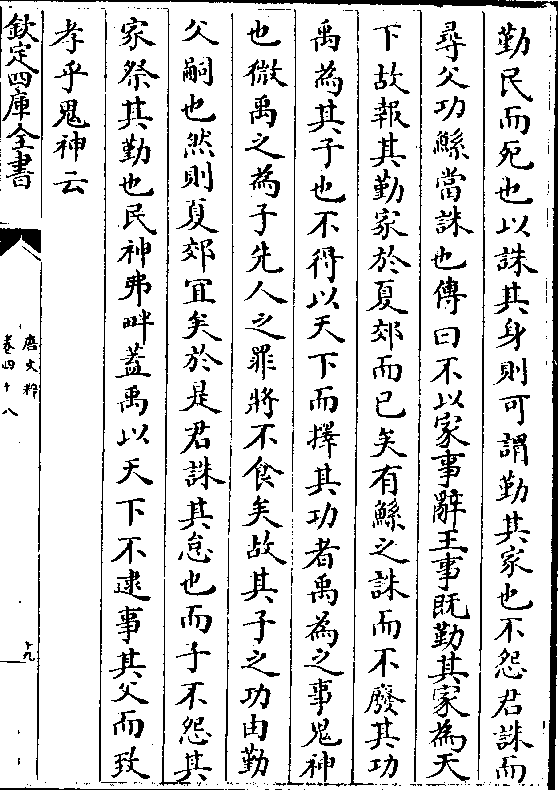 勤民而死也以誅其身則可謂勤其家也不怨君誅而
尋父功鯀當誅也傳曰不以家事辭王事既勤其家為天
下故報其勤家於夏郊而已矣有鯀之誅而不廢其功
禹為其子也不得以天下而擇其功者禹為之事鬼神
也微禹之為子先人之罪將不食矣故其子之功由勤
父嗣也然則夏郊宜矣於是君誅其怠也而子不怨其
家祭其勤也民神弗畔蓋禹以天下不逮事其父而致
孝乎鬼神云
欽定四庫全書
唐文粹
卷四十八
十九